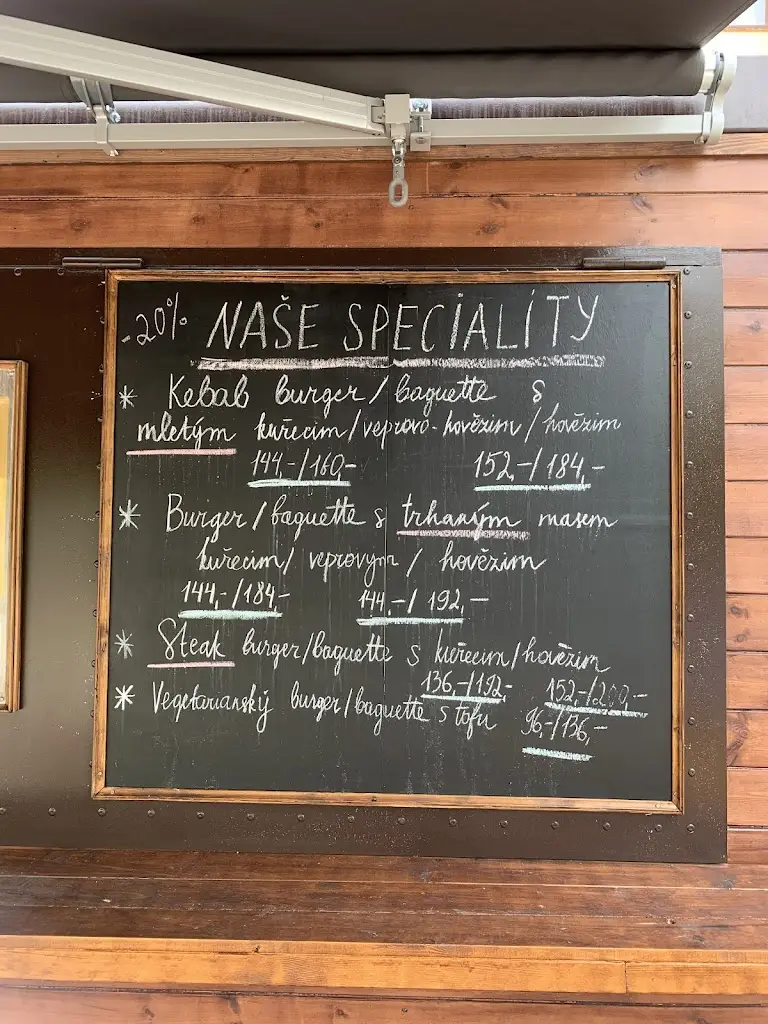 -20% NAŠE SPECIALITY
* Kebab burger/baguette s
mletým kuřecím/vepřovo-hovězím/hovězím
144,-/160,- 152,-/184,-
* Burger/baguette s trhaným masem
kuřecím/vepřovým/hovězím
144,-/184,- 144,-/192,-
* Steak burger/baguette s kuřecím/hovězím
136,-/192,- 152,-/200,-
* Vegetarianský burger/baguette s tofu
96,-/136,-